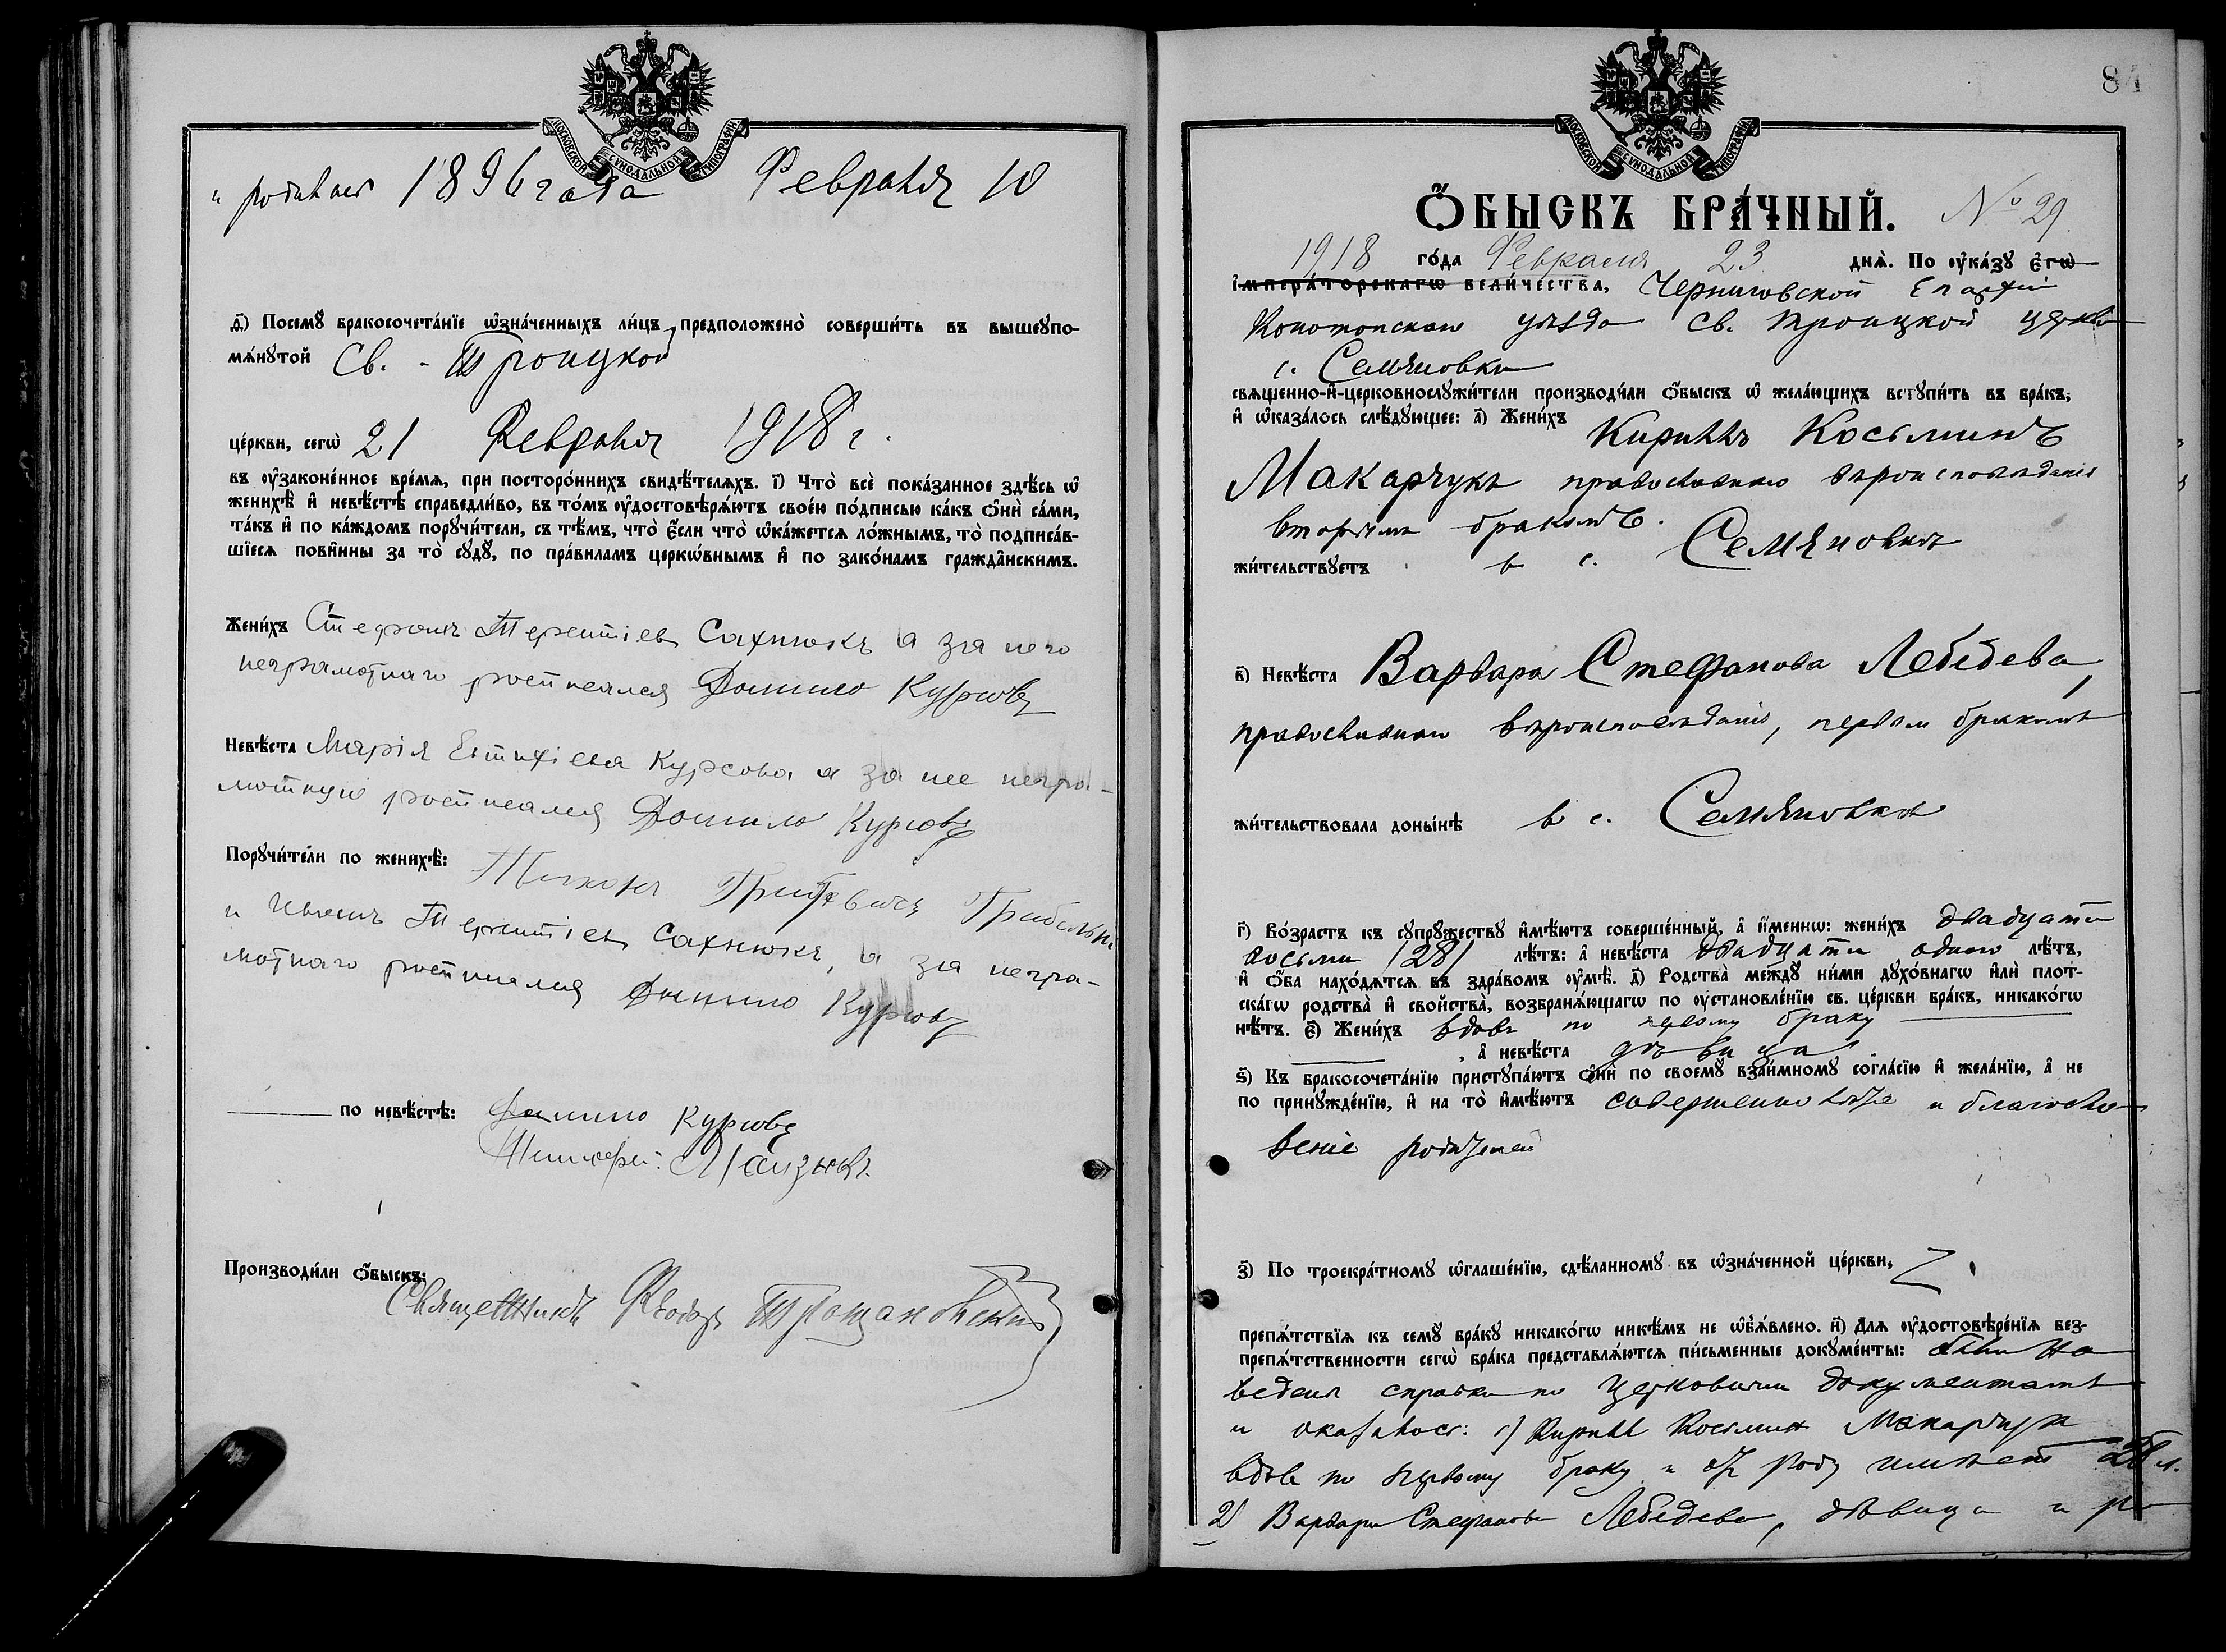 МОСКОВСКОЙ СѴНОДАЛЬНОЙ ТИПОГРАФІИ
и родилась 1896 года Февраля 10
ѳ҃) Посемꙋ̀ бракосочета́нїе ѡ҆зна́ченныхъ ли́цъ предположено̀ соверши́ть въ вышеꙋпо-
мѧ́нꙋтой Св. - Троицкой
це́ркви, сегѡ̀ 21 Февраля 1918 г.
въ ᲂу҆законе́нное вре́мѧ, при посторо́ннихъ свидѣ́телѧхъ. і҃) Что̀ всѐ пока́занное здѣ́сь ѡ҆
женихѣ̀ и҆ невѣ́стѣ справедли́во, въ то́мъ ᲂу҆достовѣрѧ́ютъ свое́ю по́дписью ка́къ ѻ҆нѝ са́ми,
та́къ и҆ по ка́ждомъ порꙋчи́тели, съ тѣ́мъ, что̀ є҆́сли что̀ ѡ҆ка́жетсѧ ло́жнымъ, то̀ подписа́в-
шїесѧ пови́нны за то̀ сꙋдꙋ̀, по пра́виламъ церкѡ́внымъ и҆ по зако́намъ гражда̑нскимъ.
Жени́хъ Стефанъ Терентіев Сахнюкъ а за него
неграмотнаго росписался Данило Курсовъ
Невѣ́ста Марія Евтихіева Курсова а за нее негра-
мотную росписался Данило Курсовъ
Порꙋчи́тели по женихѣ̀:
Тихонъ Грибельн
и Терентіев Сахнюкъ, а за негра-
мотнаго росписался Данило Курсовъ
по невѣ́стѣ: Данило Курсовъ
Тимофей
Производи́ли ѻ҆́быскъ:
Священникъ Ѳеодоръ
84
МОСКОВСКОЙ СѴНОДАЛЬНОЙ ТИПОГРАФІИ
Ѻ҆́БЫСКЪ БРА́ЧНЫЙ. № 29
1918 го́да Февраля 23 днѧ̀. По ᲂу҆ка́зꙋ є҆гѡ̀
і҆мпера́торскагѡ вели́чества, Черниговской Епархіи
Конотопскаго уѣзда Св. Троицкой церкви
с. Семяновки
свѧще́нно-и҆-церковнослꙋжи́тели производи́ли ѻ҆́быскъ ѡ҆ жела́ющихъ встꙋпи́ть въ бра́къ;
и҆ ѡ҆каза́лось слѣ́дꙋющее: а҃) Жени́хъ Кириллъ Косьминъ
Макарчукъ православнаго вѣроисповѣданія
вторымъ бракомъ.
жи́тельствꙋетъ в с. Семяновкѣ
в҃) Невѣ́ста Варвара Стефанова Лебедева,
православнаго вѣроисповѣданія, первым бракомъ
жи́тельствовала доны́нѣ в с. Семяновкѣ
г҃) Во́зрастъ къ сꙋпрꙋ́жествꙋ и҆мѣ́ютъ соверше́нный, а҆ и҆́меннѡ: жени́хъ двадцати
восьми /28/ лѣ́тъ: а҆ невѣ́ста двадцати одного лѣ́тъ,
и҆ ѻ҆́ба нахо́дѧтсѧ въ здра́вомъ ᲂу҆мѣ̀. д҃) Родства̀ ме́ждꙋ ни́ми дꙋхо́внагѡ и҆лѝ плот-
ска́гѡ родства̀ и҆ сво́йства̀, возбранѧ́ющагѡ по ᲂу҆становле́нїю св. це́ркви бра́къ, никако́гѡ
нѣ́тъ. є҃) Жени́хъ вдовъ по первому браку
, а҆ невѣ́ста дѣвица
ѕ҃) Къ бракосочета́нїю пристꙋпа́ютъ ѻ҆нѝ по своемꙋ̀ взаи́мномꙋ согла́сїю и҆ жела́нїю, а҆ не
по принꙋжде́нїю, и҆ на то̀ и҆мѣ́ютъ совершеннолѣтіе и благосло-
веніе родителей
з҃) По троекра́тномꙋ ѡ҆глаше́нїю, сдѣ́ланномꙋ въ ѡ҆зна́ченной це́ркви,
препѧ́тствїѧ къ семꙋ̀ бра́кꙋ никако́гѡ никѣ́мъ не ѡ҆б̾ѧ́влено. и҃) Длѧ ᲂу҆достовѣре́нїѧ без-
препѧ́тственности сегѡ̀ бра́ка представлѧ́ютсѧ пи́сьменные докꙋме́нты: были на
ведены справки по церковным документамъ
и оказалось: 1) Кириллъ Косьмин Макарчук
вдовъ по первому браку и от роду имѣет 28 л.
2) Варвара Стефанова Лебедева, дѣвица и ро